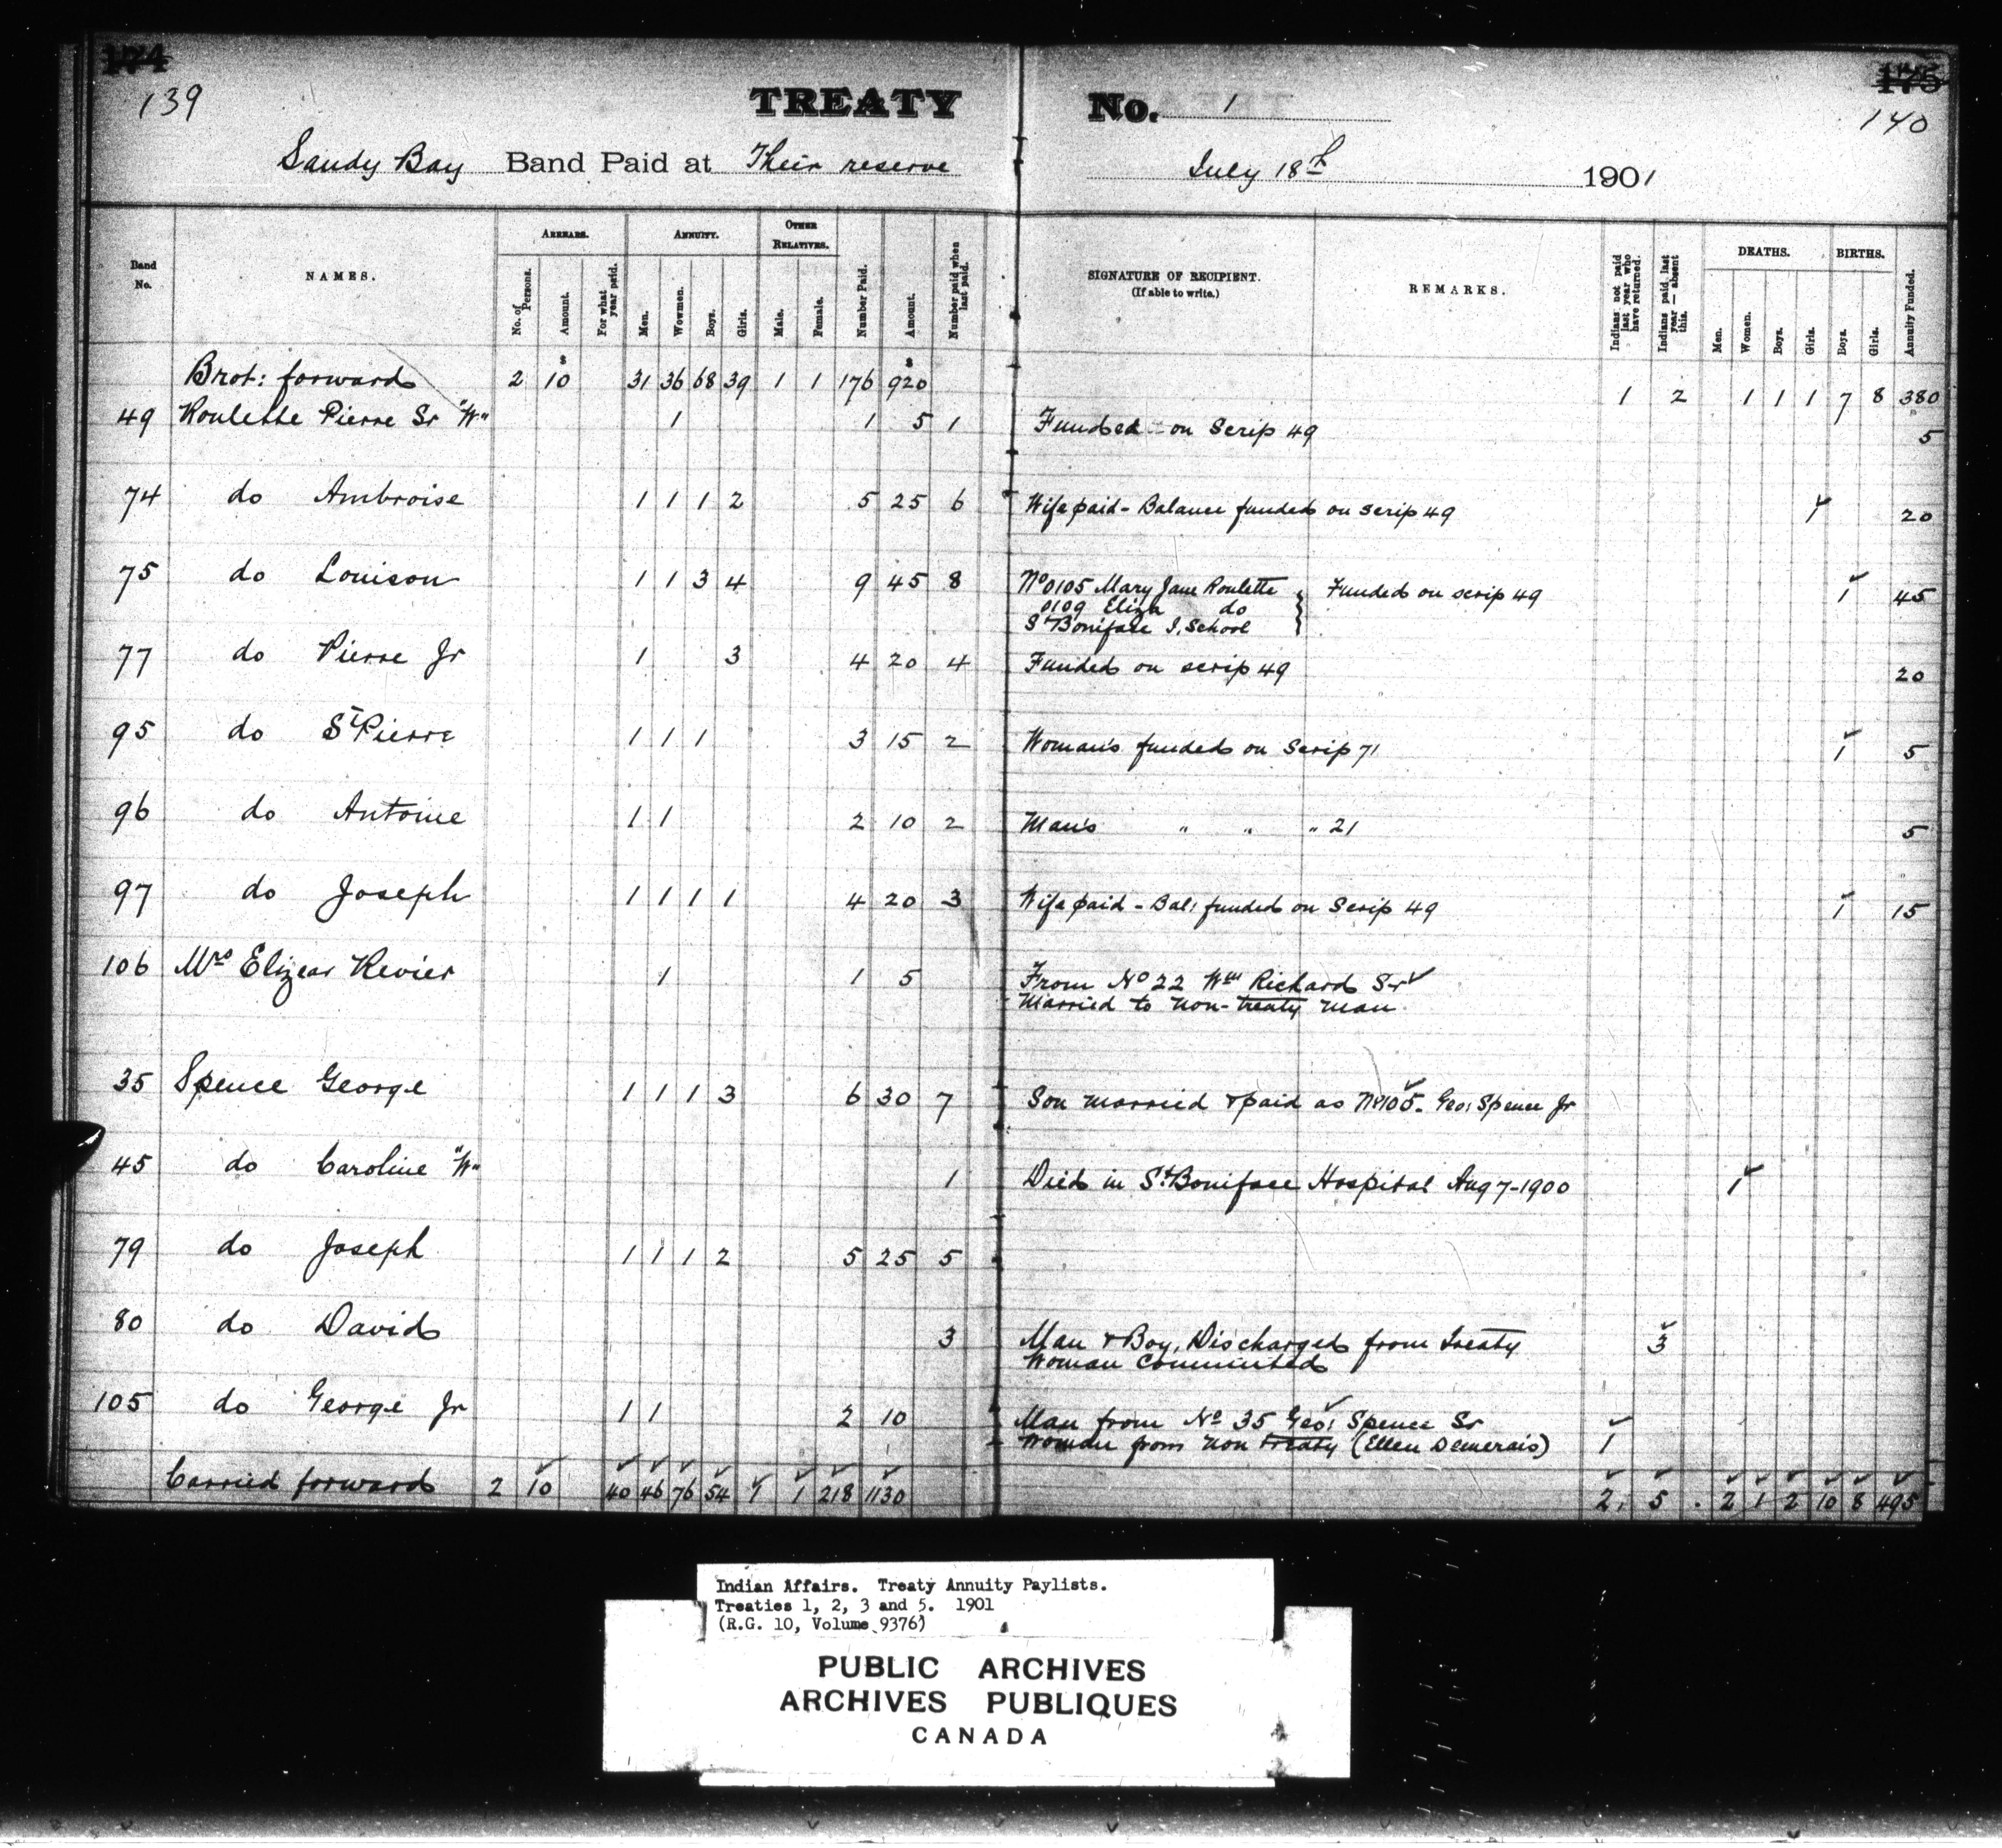 174
175
139
140
TREATY No. 1
Sandy Bay Band Paid at Their reserve July 18th 1901
Band No.
NAMES.
ARREARS.
No. of Persons.
Amount.
For what year paid.
ANNUITY.
Men.
Wowmen.
Boys.
Girls.
OTHER RELATIVES.
Male.
Female.
Number Paid.
Amount.
Number paid when last paid.
SIGNATURE OF RECIPIENT.
(If able to write.)
REMARKS.
Indians not paid last year who have returned.
Indians paid last year — absent this.
DEATHS.
Men.
Women.
Boys.
Girls.
BIRTHS.
Boys.
Girls.
Annuity Funded.
Brot: forward 2 $10 31 36 68 39 1 1 176 $920 1 2 1 1 1 7 8 380
49 Roulette Pierre Sr "W" 1 1 5 1 Funded on Scrip 49 5
74 do Ambroise 1 1 1 2 5 25 6 Wife paid - Balance funded on scrip 49 1 20
75 do Louison 1 1 3 4 9 45 8 No 0105 Mary Jane Roulette } Funded on scrip 49 1 45
0109 Eliza do
St Boniface I. School
77 do Pierre Jr 1 3 4 20 4 Funded on scrip 49 20
95 do St Pierre 1 1 1 3 15 2 Woman's funded on Scrip 71 1 5
96 do Antoine 1 1 2 10 2 Man's " " " 21 5
97 do Joseph 1 1 1 1 4 20 3 Wife paid - Bal: funded on Scrip 49 1 15
106 Mrs Elizear Revier 1 1 5 From No 22 Wm Richard Sr
Married to non-treaty man
35 Spence George 1 1 1 3 6 30 7 Son married & paid as No 105. Geo: Spence Jr
45 do Caroline "W" 1 Died in St. Boniface Hospital Aug 7-1900 1
79 do Joseph 1 1 1 2 5 25 5
80 do David 3 Man & Boy, Discharged from Treaty 3
Woman Commuted
105 do George Jr 1 1 2 10 Man from No 35 Geo: Spence Sr
Woman from non treaty (Ellen Demerais) 1
Carried forward 2 10 40 46 76 54 1 1 218 1130 2 5 2 1 2 10 8 495
Indian Affairs. Treaty Annuity Paylists.
Treaties 1, 2, 3 and 5. 1901
(R.G. 10, Volume 9376)
PUBLIC ARCHIVES
ARCHIVES PUBLIQUES
CANADA